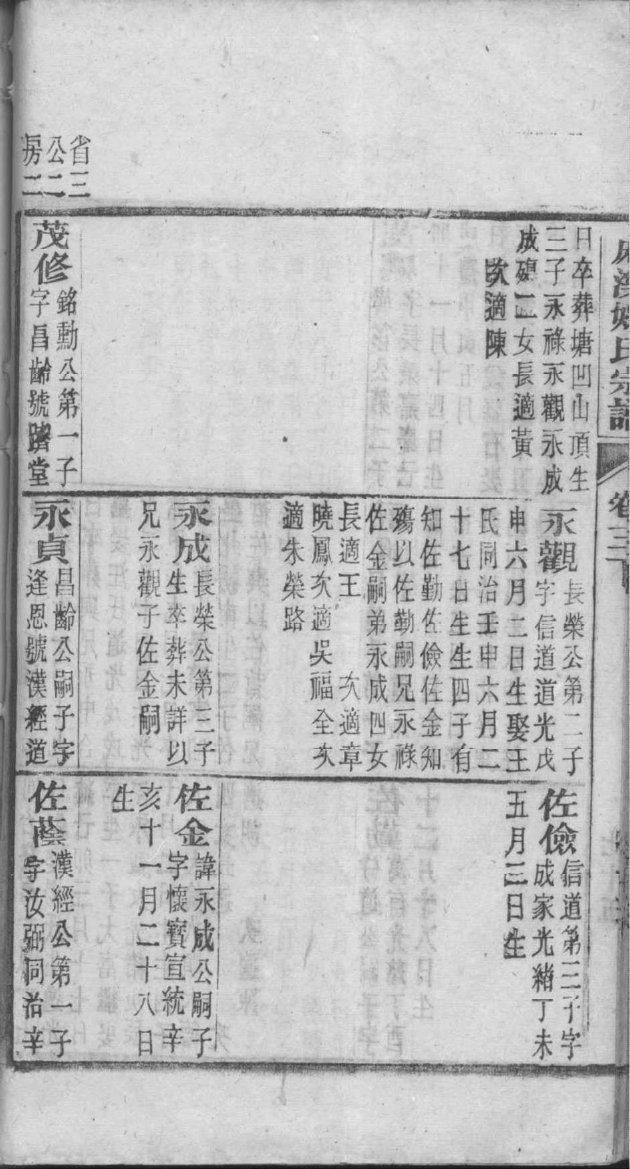 氏宗譜
卷三下
日卒葬塘凹山頂生
三子永祿永觀永成
成碩二女長適黃
次適陳
省三
公二
房二
茂修
銘勳公第一子
字昌齡號躋堂
永觀
長榮公第二子
字信道道光戊
申六月二日生娶王
氏同治壬申六月二
十七日生生四子有
知佐勤佐儉佐金知
殤以佐勤嗣兄永祿
佐金嗣弟永成四女
長適王 次適章
曉鳳次適吳福全次
適朱榮路
永成
長榮公第三子
生卒葬未詳以
兄永觀子佐金嗣
永貞
昌齡公嗣子字
逢恩號漢經道
佐儉
信道第三子字
成家光緒丁未
五月三日生
佐金
諱永成公嗣子
字懷寶宣統辛
亥十一月二十八日
生
佐蔭
漢經公第一子
字汝弼同治辛